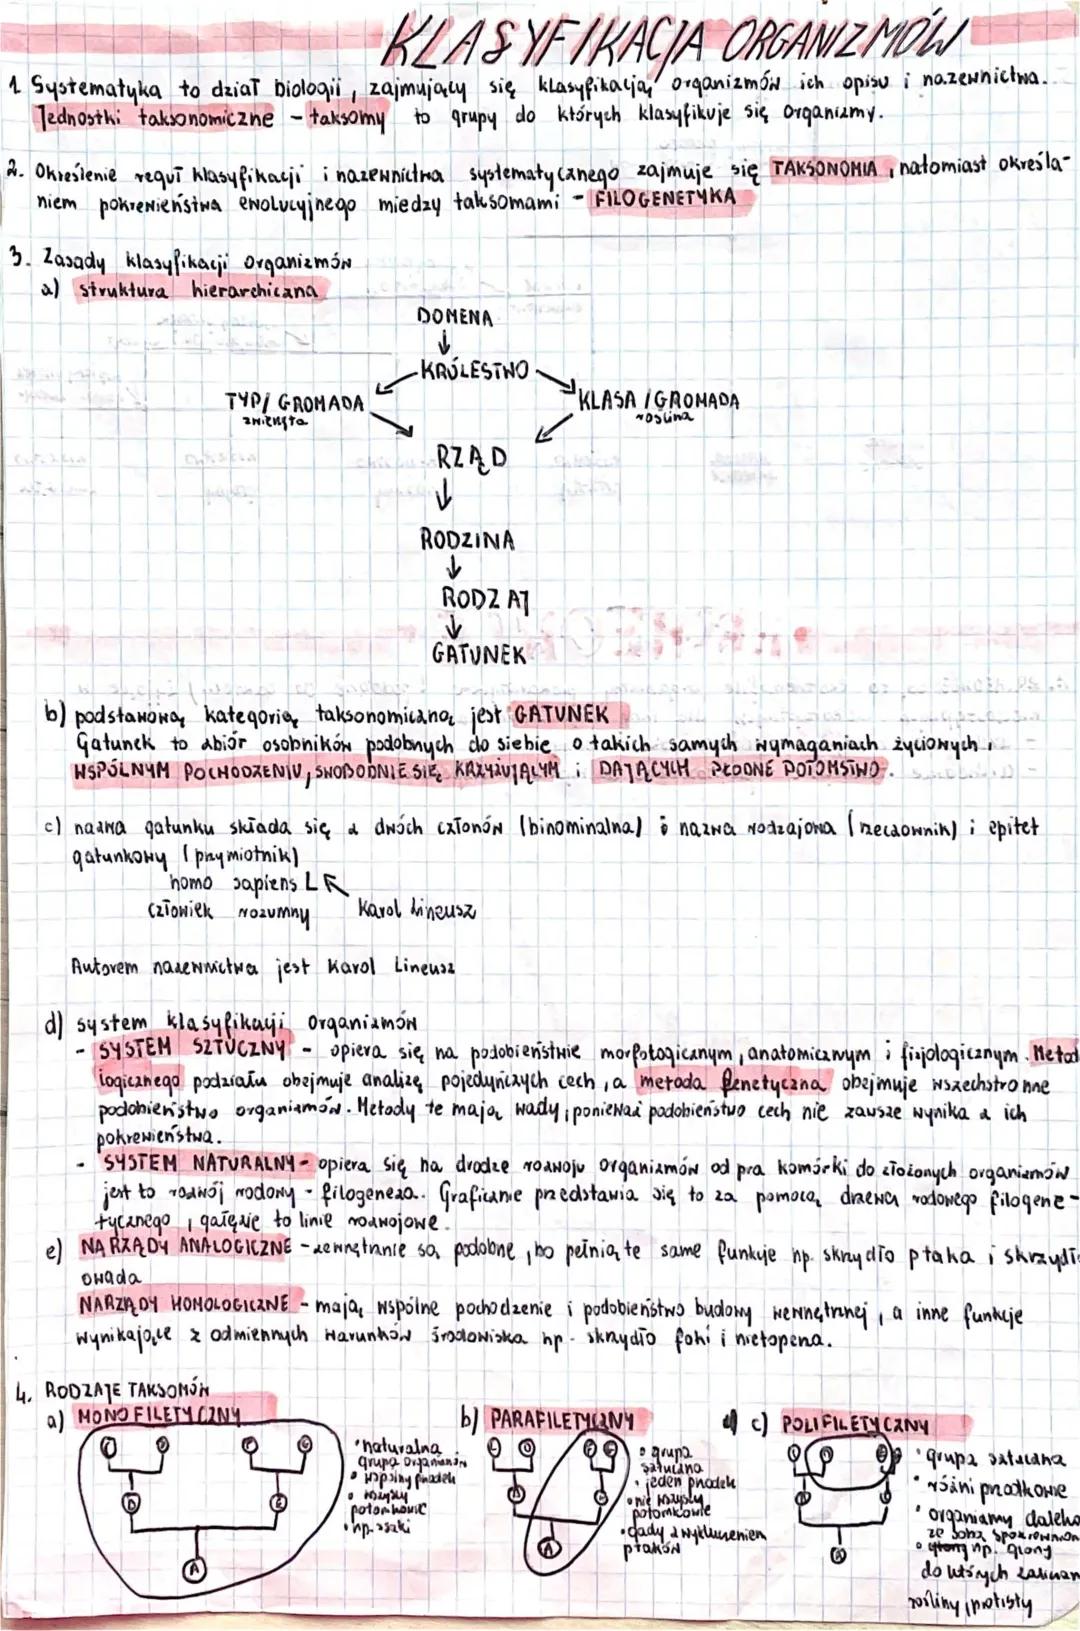 KLASYFIKACJA ORGANIZMÓW
1 Systematyka to dział biologii, zajmujący się klasyfikacją organizmów ich opisu i nazewnictwa.
Jednostki taksonomiczne - taksomy to grupy do których klasyfikuje się organizmy.
2. Określenie reguł klasyfikacji i nazewnictwa systematycznego zajmuje się TAKSONOMIA, natomiast określa-
niem pokrewieństwa ewolucyjnego miedzy taksomami - FILOGENETYKA
3. Zasady klasyfikacji organizmów
a) struktura hierarchiczna
DOMENA
KRÓLESTWO
TYP/ GROMADA
zwierzęta
KLASA /GROMADA
roślina
RZĄD
RODZINA
RODZAJ
GATUNEK
b) podstawową kategorią taksonomiczną jest GATUNEK
Gatunek to zbiór osobników podobnych do siebie o takich samych wymaganiach życiowych,
WSPÓLNYM POCHODZENIU, SWOBODNIE SIĘ KRZYŻUJĄCYM i DAJĄCYCH PŁODNE POTOMSTWO.
c) nazwa gatunku składa się z dwóch członów (binominalna) : nazwa rodzajowa (rzeczownik) i epitet
gatunkowy (przymiotnik)
homo sapiens L
człowiek rozumny Karol Lineusz
Autorem nazewnictwa jest Karol Lineusz
d) system klasyfikacji organizmów
- SYSTEM SZTUCZNY - opiera się na podobieństwie morfologicznym, anatomicznym i fizjologicznym. Metod
logicznego podziału obejmuje analizę pojedyńczych cech, a metoda fenetyczna obejmuje wszechstronne
podobieństwo organizmów. Metody te mają wady, ponieważ podobieństwo cech nie zawsze wynika z ich
pokrewieństwa.
- SYSTEM NATURALNY - opiera się na drodze rozwoju organizmów od pra komórki do złożonych organizmów
jest to rozwój rodowy - filogeneza. Graficznie przedstawia się to za pomocą drzewa rodowego filogene-
tycznego, gałęzie to linie rozwojowe.
e) NARZĄDY ANALOGICZNE - zewnętrznie są podobne, bo pełnią te same funkcje np. skrzydło ptaka i skrzydł
owada
NARZĄDY HOMOLOGICZNE - mają wspólne pochodzenie i podobieństwo budowy wewnętrznej, a inne funkcje
wynikające z odmiennych warunków środowiska np. skrzydło foki i nietoperza.
4. RODZAJE TAKSOMÓW
a) MONOFILETYCZNY
• naturalna
grupa organizmów
• wspólny przodek
• wszyscy
potomkowie
• np. ssaki
A
b) PARAFILETYCZNY
• grupa
sztuczna
• jeden przodek
• nie wszyscy
potomkowie
• gady z wykluczeniem
ptaków
A
c) POLIFILETYCZNY
• grupa sztuczna
• różni przodkowie
• organizmy daleko
ze sobą spokrewnion
• np. glony
do których zaliczan
rośliny, protisty
A